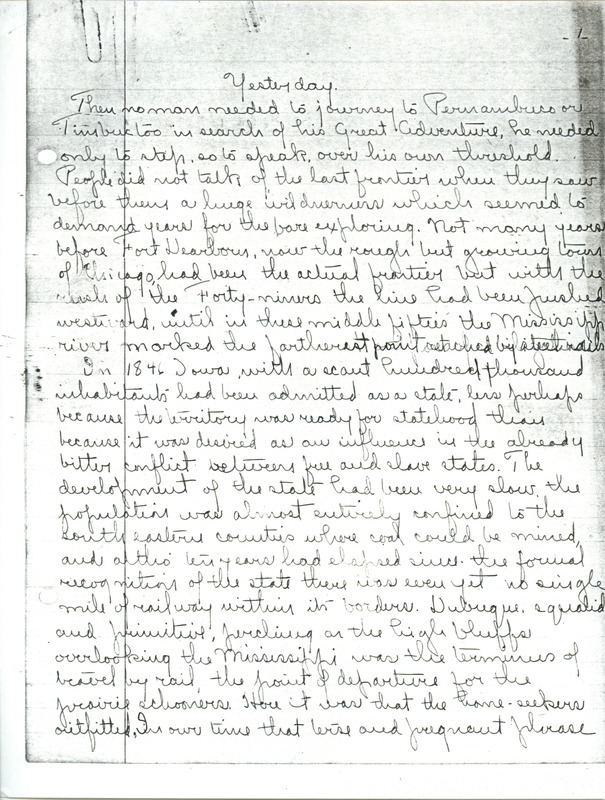 - 1
Yesterday.
Then no man needed to journey to Pernambuco or
Timbuctoo in search of his Great Adventure, he needed
only to step, so to speak, over his own threshold.
People did not talk of the last frontier when they saw
before them a huge wilderness which seemed to
demand years for the bare exploring. Not many years
before Fort Dearborn, now the rough but growing town
of Chicago, had been the actual frontier but with the
rush of the Forty-niners the line had been pushed
westward, until in these middle fifties the Mississippi
river marked the farthest point reached by steel rails
In 1846 Iowa, with a scant hundred thousand
inhabitants had been admitted as a state, less perhaps
because the territory was ready for statehood than
because it was desired as an influence in the already
bitter conflict between free and slave states. The
development of the state had been very slow, the
population was almost entirely confined to the
south eastern counties where coal could be mined,
and altho ten years had elapsed since the formal
recognition of the state there was even yet no single
mile of railway within its borders. Dubuque, squalid
and primitive, perching on the high bluffs
overlooking the Mississippi was the terminus of
travel by rail, the point of departure for the
prairie schooners. Here it was that the home-seekers
outfitted, In our time that terse and pregnant phrase